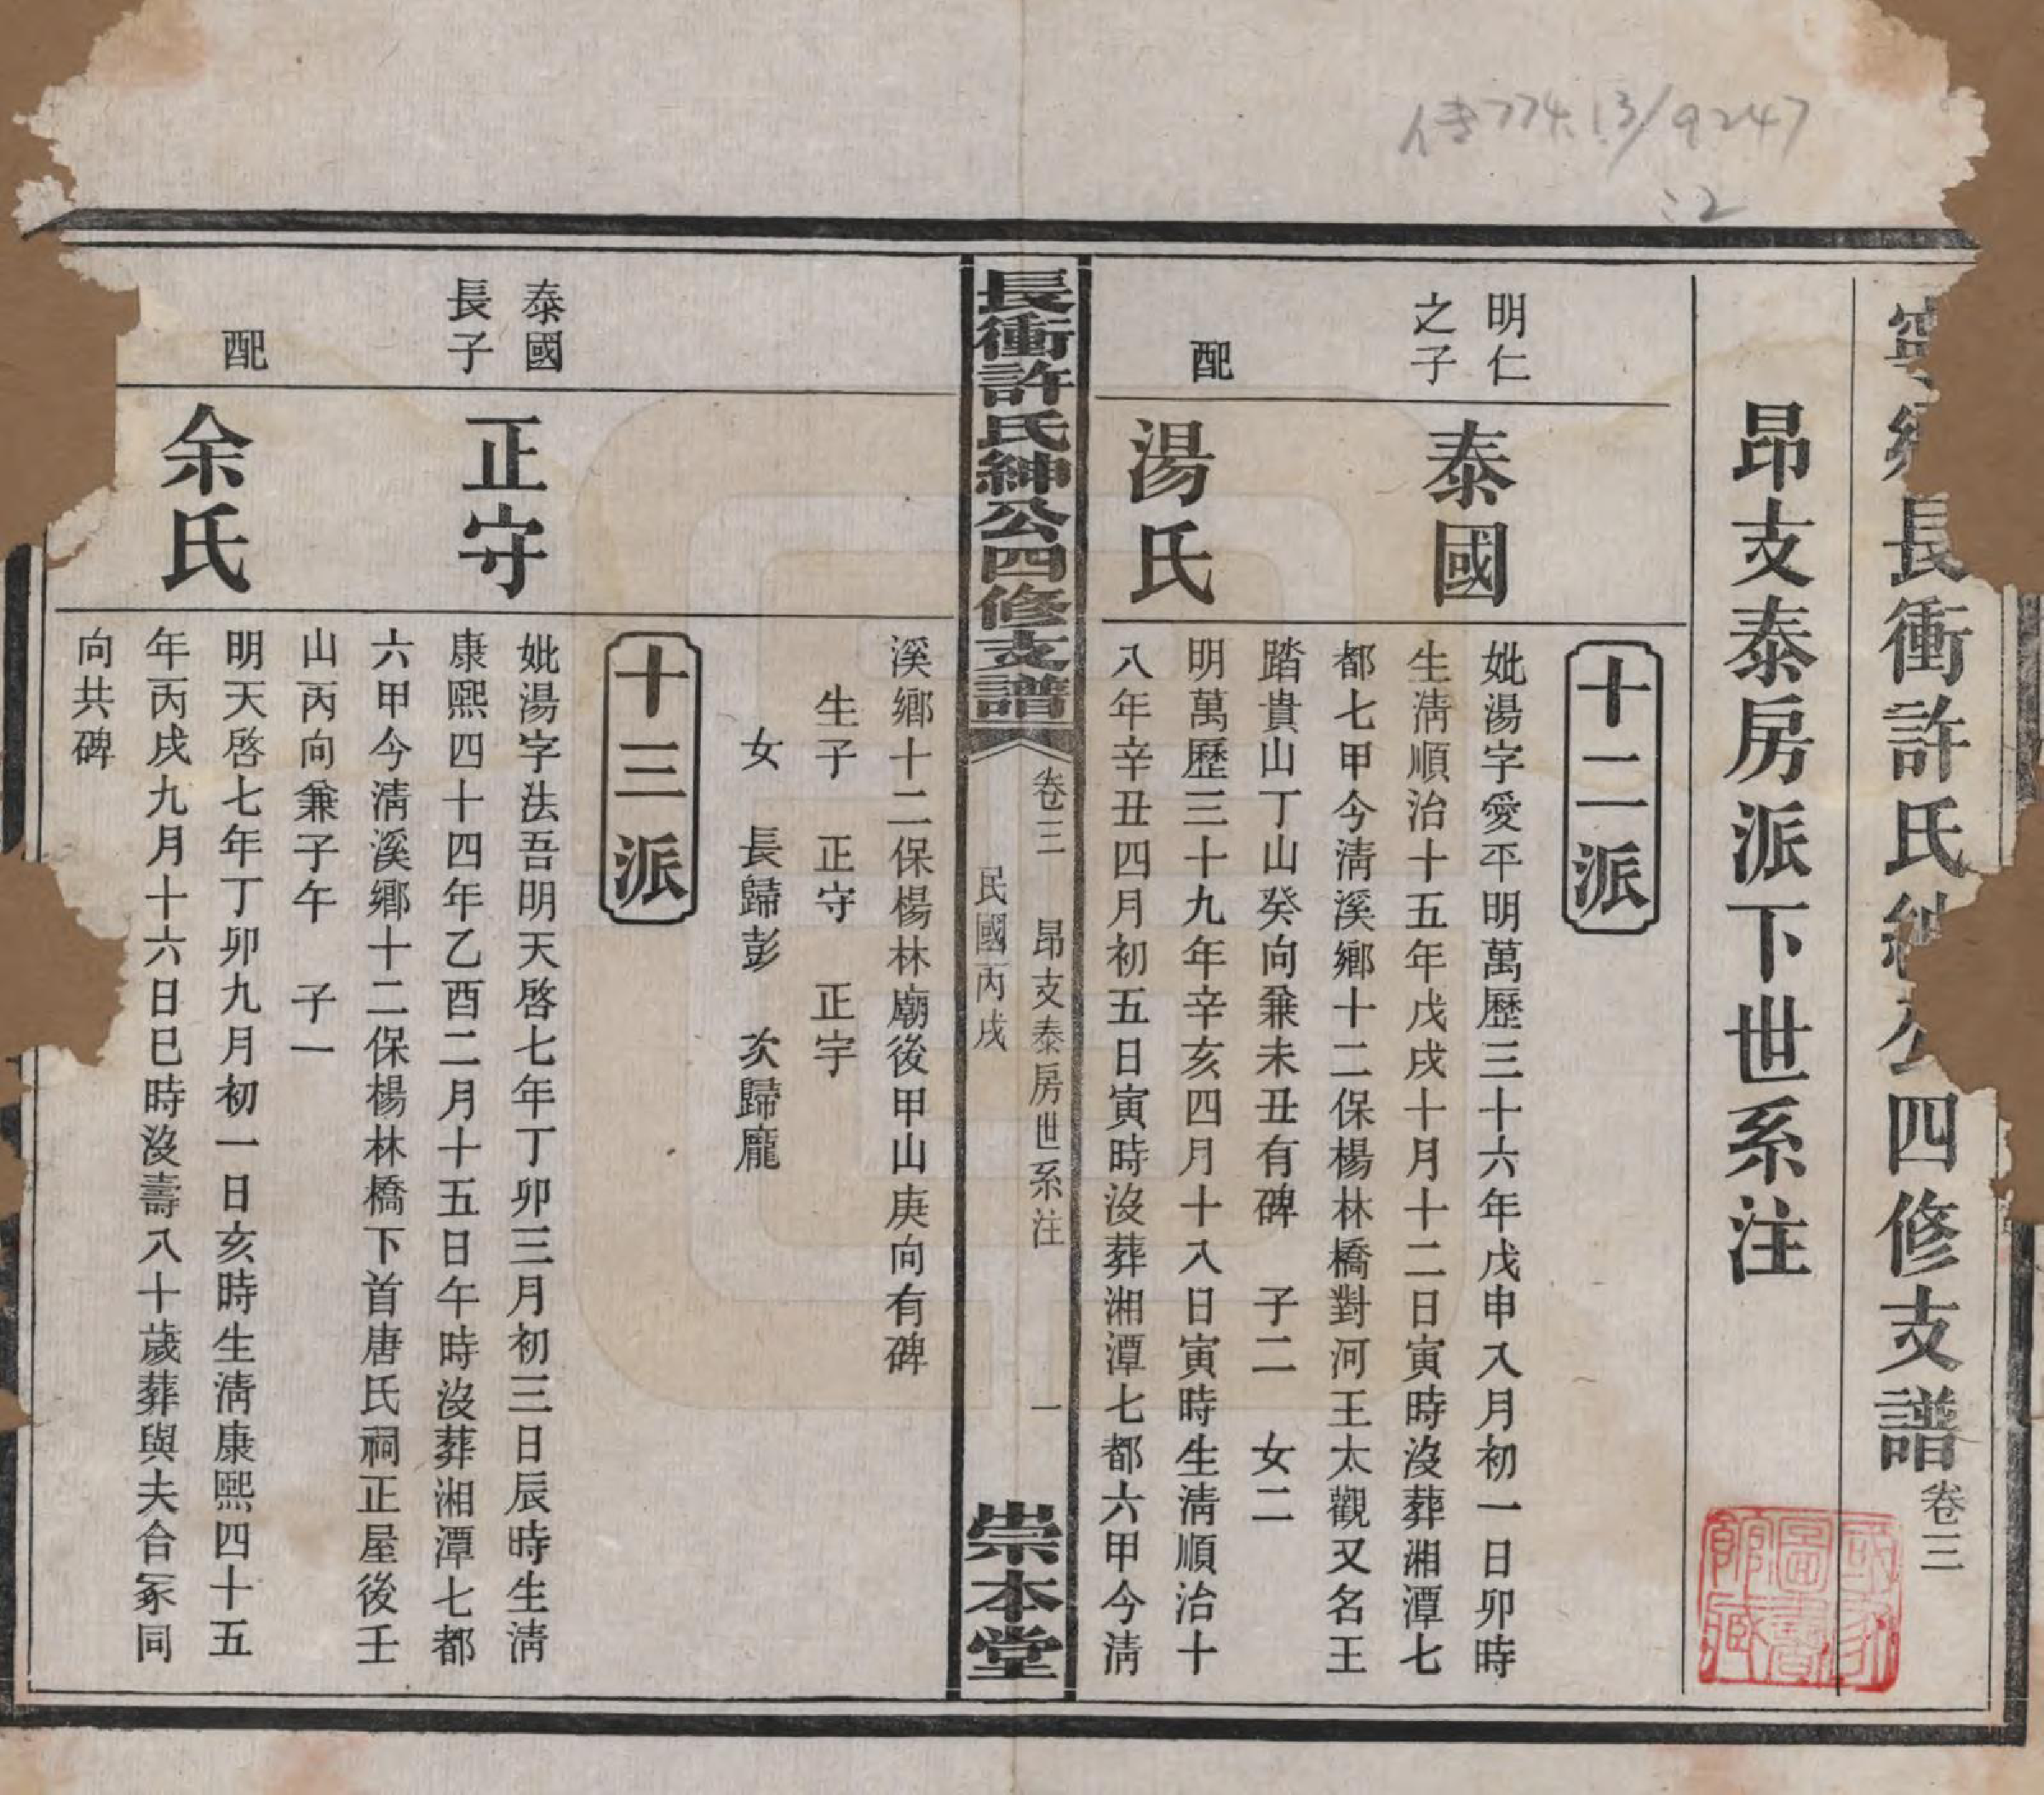 傳774.13/9247
:2
長衝許氏紳公四修支譜卷三
昂支泰房派下世系注
十二派
明仁
之子
泰國
妣湯字愛平明萬歷三十六年戊申八月初一日卯時
生淸順治十五年戊戌十月十二日寅時沒葬湘潭七
都七甲今淸溪鄉十二保楊林橋對河王太觀又名王
踏貴山丁山癸向兼未丑有碑 子二 女二
配
湯氏
明萬歷三十九年辛亥四月十八日寅時生淸順治十
八年辛丑四月初五日寅時沒葬湘潭七都六甲今淸
長衝許氏紳公四修支譜
卷三 昂支泰房世系注 一
民國丙戌
崇本堂
溪鄉十二保楊林廟後甲山庚向有碑
生子 正守 正宇
女 長歸彭 次歸龐
十三派
泰國
長子
正守
妣湯字法吾明天啓七年丁卯三月初三日辰時生淸
康熙四十四年乙酉二月十五日午時沒葬湘潭七都
六甲今淸溪鄉十二保楊林橋下首唐氏祠正屋後壬
山丙向兼子午 子一
配
余氏
明天啓七年丁卯九月初一日亥時生淸康熙四十五
年丙戌九月十六日巳時沒壽八十歲葬與夫合冢同
向共碑
國家圖書館藏